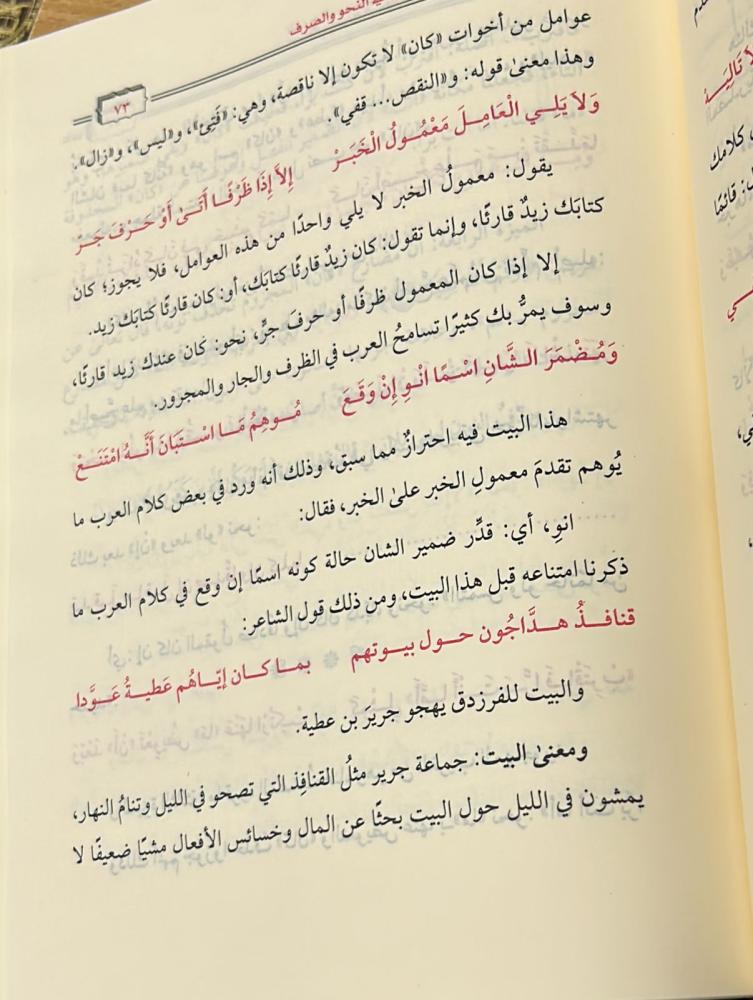 النحو والصرف
٧٣
عوامل من أخوات «كان» لا تكون إلا ناقصة، وهي: «فَتِئَ»، و«ليس»، و«زال».
وهذا معنىٰ قوله: و«النقص... قفي».
وَلاَ يَلِي الْعَامِلَ مَعْمُولُ الْخَبَرْ إِلاَّ إِذَا ظَرْفًا أَتَىٰ أَوْ حَرْفَ جَرّ
يقول: معمولُ الخبر لا يلي واحدًا من هذه العوامل، فلا يجوز؛ كان
كتابَك زيدٌ قارئًا، وإنما تقول: كان زيدٌ قارئًا كتابَك، أو: كان قارئًا كتابَك زيد.
إلا إذا كان المعمول ظرفًا أو حرفَ جرٍّ، نحو: كان عندك زيد قارئًا،
وسوف يمرُّ بك كثيرًا تسامحُ العرب في الظرف والجار والمجرور.
وَمُضْمَرَ الشَّانِ اسْمًا انْوِ إِنْ وَقَعَ مُوهِمُ مَا اسْتَبَانَ أَنَّهُ امْتَنَعْ
هذا البيت فيه احترازٌ مما سبق، وذلك أنه ورد في بعض كلام العرب ما
يُوهم تقدمَ معمولِ الخبر علىٰ الخبر، فقال:
انوِ، أي: قدِّر ضمير الشان حالة كونه اسمًا إن وقع في كلام العرب ما
ذكرنا امتناعه قبل هذا البيت، ومن ذلك قول الشاعر:
قنافذُ هدَّاجُون حول بيوتهم بما كان إيّاهُم عَطيةُ عَوَّدا
والبيت للفرزدق يهجو جريرَ بن عطية.
ومعنىٰ البيت: جماعة جرير مثلُ القنافِذ التي تصحو في الليل وتنامُ النهار،
يمشون في الليل حول البيت بحثًا عن المال وخسائس الأفعال مشيًا ضعيفًا لا
كلامك
قائمًا